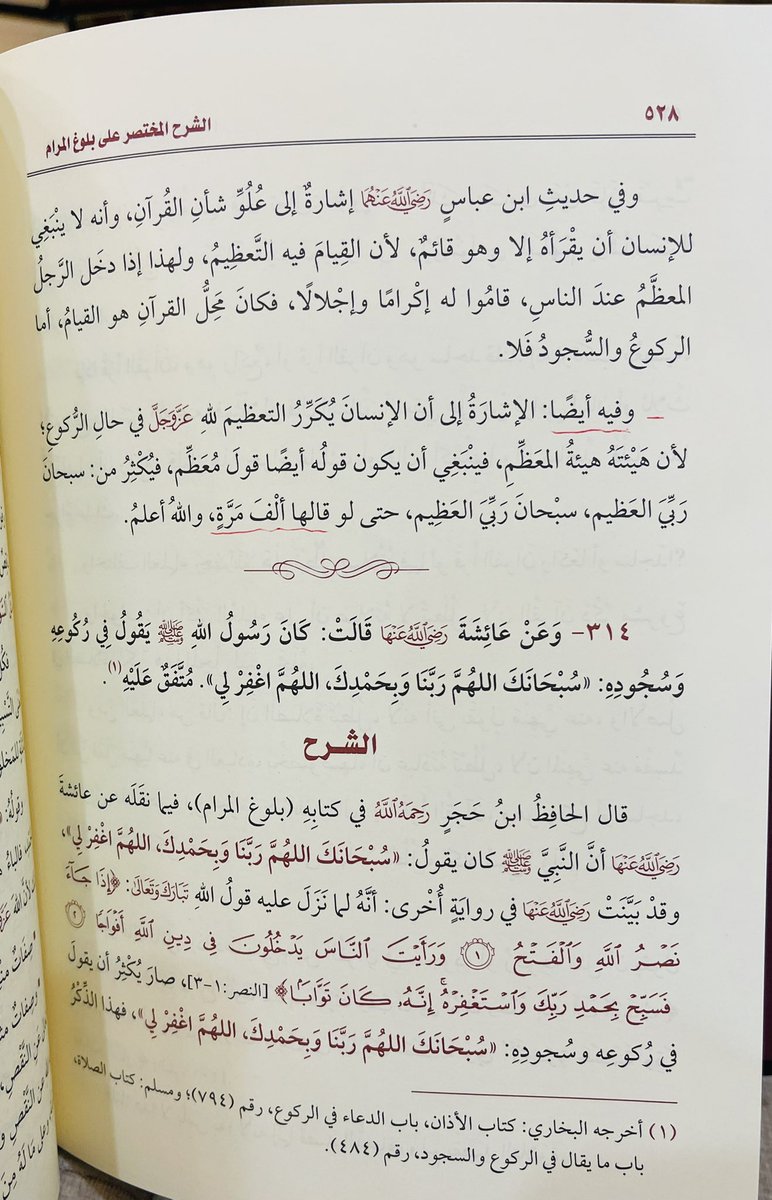 ٥٢٨
الشرح المختصر على بلوغ المرام
وفي حديثِ ابن عباسٍ رَضِيَ اللَّهُ عَنْهُمَا إشارةٌ إلى عُلُوِّ شأنِ القُرآنِ، وأنه لا ينْبَغِي
للإنسان أن يقْرَأهُ إلا وهو قائمٌ، لأن القِيامَ فيه التَّعظِيمُ، ولهذا إذا دخَل الرَّجلُ
المعظَّمُ عندَ الناسِ، قامُوا له إكْرامًا وإجْلالًا، فكانَ محِلُّ القرآنِ هو القيامُ، أما
الركوعُ والسُّجودُ فَلا.
وفيه أيضًا: الإشارَةُ إلى أن الإنسانَ يُكَرِّرُ التعظيمَ للهِ عَزَّوَجَلَّ في حالِ الرُّكوعِ؛
لأن هَيْئتَهُ هيئةُ المعَظِّمِ، فينْبَغِي أن يكون قولُه أيضًا قولَ مُعَظِّم، فيُكْثِرُ من: سبحانَ
رَبِّيَ العَظيم، سبْحانَ رَبِّيَ العَظِيم، حتى لو قالها ألْفَ مَرَّةٍ، واللهُ أعلمُ.
٣١٤- وَعَنْ عَائِشَةَ رَضِيَ اللَّهُ عَنْهَا قَالَتْ: كَانَ رَسُولُ اللهِ ﷺ يَقُولُ فِي رُكُوعِهِ
وَسُجُودِهِ: «سُبْحَانَكَ اللهُمَّ رَبَّنَا وَبِحَمْدِكَ، اللهُمَّ اغْفِرْ لِي». مُتَّفَقٌ عَلَيْهِ(١).
الشرح
قال الحافِظُ ابنُ حَجَرٍ رَحِمَهُ اللَّهُ في كتابِهِ (بلوغ المرام)، فيما نقَلَه عن عائشةَ
رَضِيَ اللَّهُ عَنْهَا أنَّ النَّبِيَّ ﷺ كان يقولُ: «سُبْحَانَكَ اللهُمَّ رَبَّنَا وَبِحَمْدِكَ، اللهُمَّ اغْفِرْ لِي»،
وقدْ بيَّنَتْ رَضِيَ اللَّهُ عَنْهَا في روايَةٍ أُخْرى: أنَّهُ لما نَزَلَ عليه قولُ اللهِ تَبَارَكَ وَتَعَالَى: ﴿إِذَا جَآءَ
نَصْرُ اللَّهِ وَالْفَتْحُ ۝١ وَرَأَيْتَ النَّاسَ يَدْخُلُونَ فِي دِينِ اللَّهِ أَفْوَاجًا ۝٢
فَسَبِّحْ بِحَمْدِ رَبِّكَ وَاسْتَغْفِرْهُ ۚ إِنَّهُۥ كَانَ تَوَّابًا﴾ [النصر:١-٣]، صارَ يُكْثِرُ أن يقولَ
في رُكوعِه وسُجودِهِ: «سُبْحَانَكَ اللهُمَّ رَبَّنَا وَبِحَمْدِكَ، اللهُمَّ اغْفِرْ لِي»، فهذا الذِّكْرُ
(١) أخرجه البخاري: كتاب الأذان، باب الدعاء في الركوع، رقم (٧٩٤)؛ ومسلم: كتاب الصلاة،
باب ما يقال في الركوع والسجود، رقم (٤٨٤).